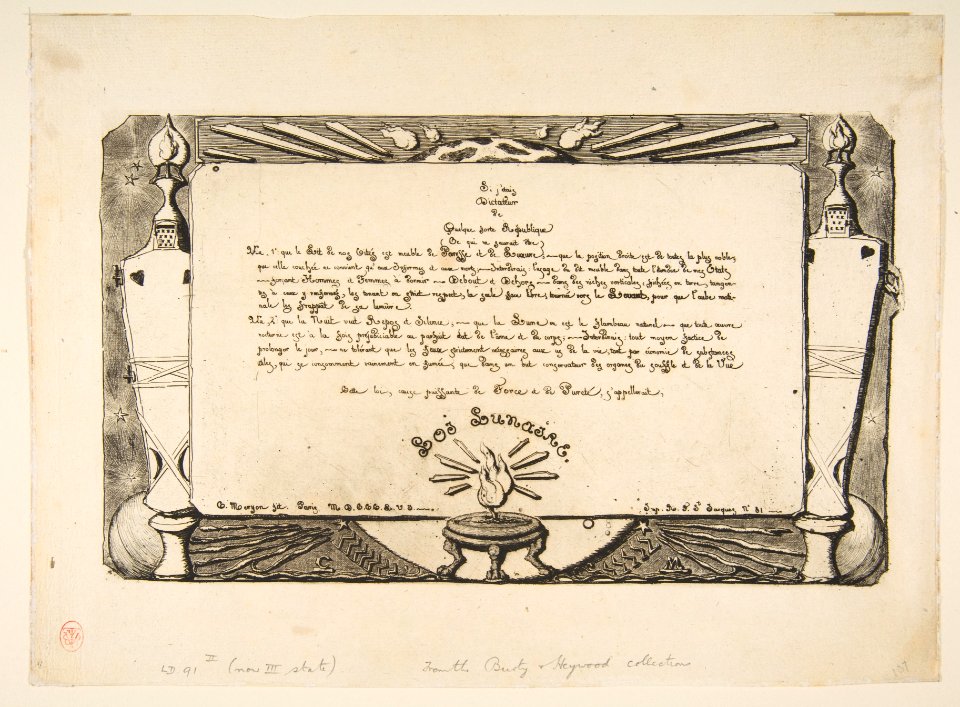 Si j'étais
Dictateur
de
Quelque sorte République
(Ce qui ne saurait être)
Vu, 1° que le Lit de nos Cités est meuble de Paresse et de Luxure; que la position droite est de toutes la plus noble;
que celle couchée ne convient qu'aux Infirmes et aux morts, Interdirais: l'usage du dit meuble dans toute l'étendue de mes États
forçant Hommes et Femmes à dormir Debout et Dehors dans des niches verticales, fichées en terre,
le Levant, pour que l'aube
nale les frappât de sa lumière.
Vu, 2° que la Nuit veut Repos et Silence; que la Lune en est le flambeau naturel que toute œuvre
nocturne est à la fois préjudiciable au parfait état de l'âme et du corps; Interdirais: tout moyen factice de
prolonger le jour, ne tolérant que les feux strictement nécessaires aux us de la vie, tant par économie de substances
utiles, qui se consomment vainement en fumée, que dans un but conservateur des organes du souffle et de la Vue
Cette loi, cause puissante de Force et de Pureté, s'appellerait,
LOI LUNAIRE.
C. Meryon fit. Paris M.D.C.C.C.L.V.I.
Imp. R. N. St Jacques N° 81
LD 91 II (now III state)
From the Burty & Heywood collections